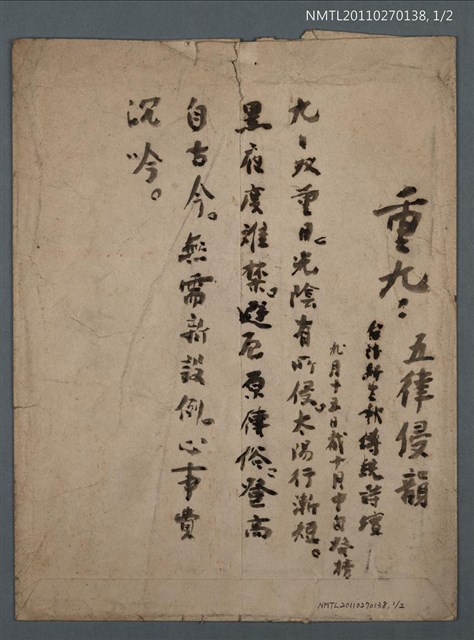 NMTL20110270138, 1/2
重九：五律侵韻
台灣新生報傳統詩壇
九月十五日截十月中旬發榜
九々双重日。光陰有所侵。太陽行漸短。
黑夜度難禁。避厄原傳俗。登高
自古今。無需新設例。心事費
沉吟。
NMTL20110270138, 1/2